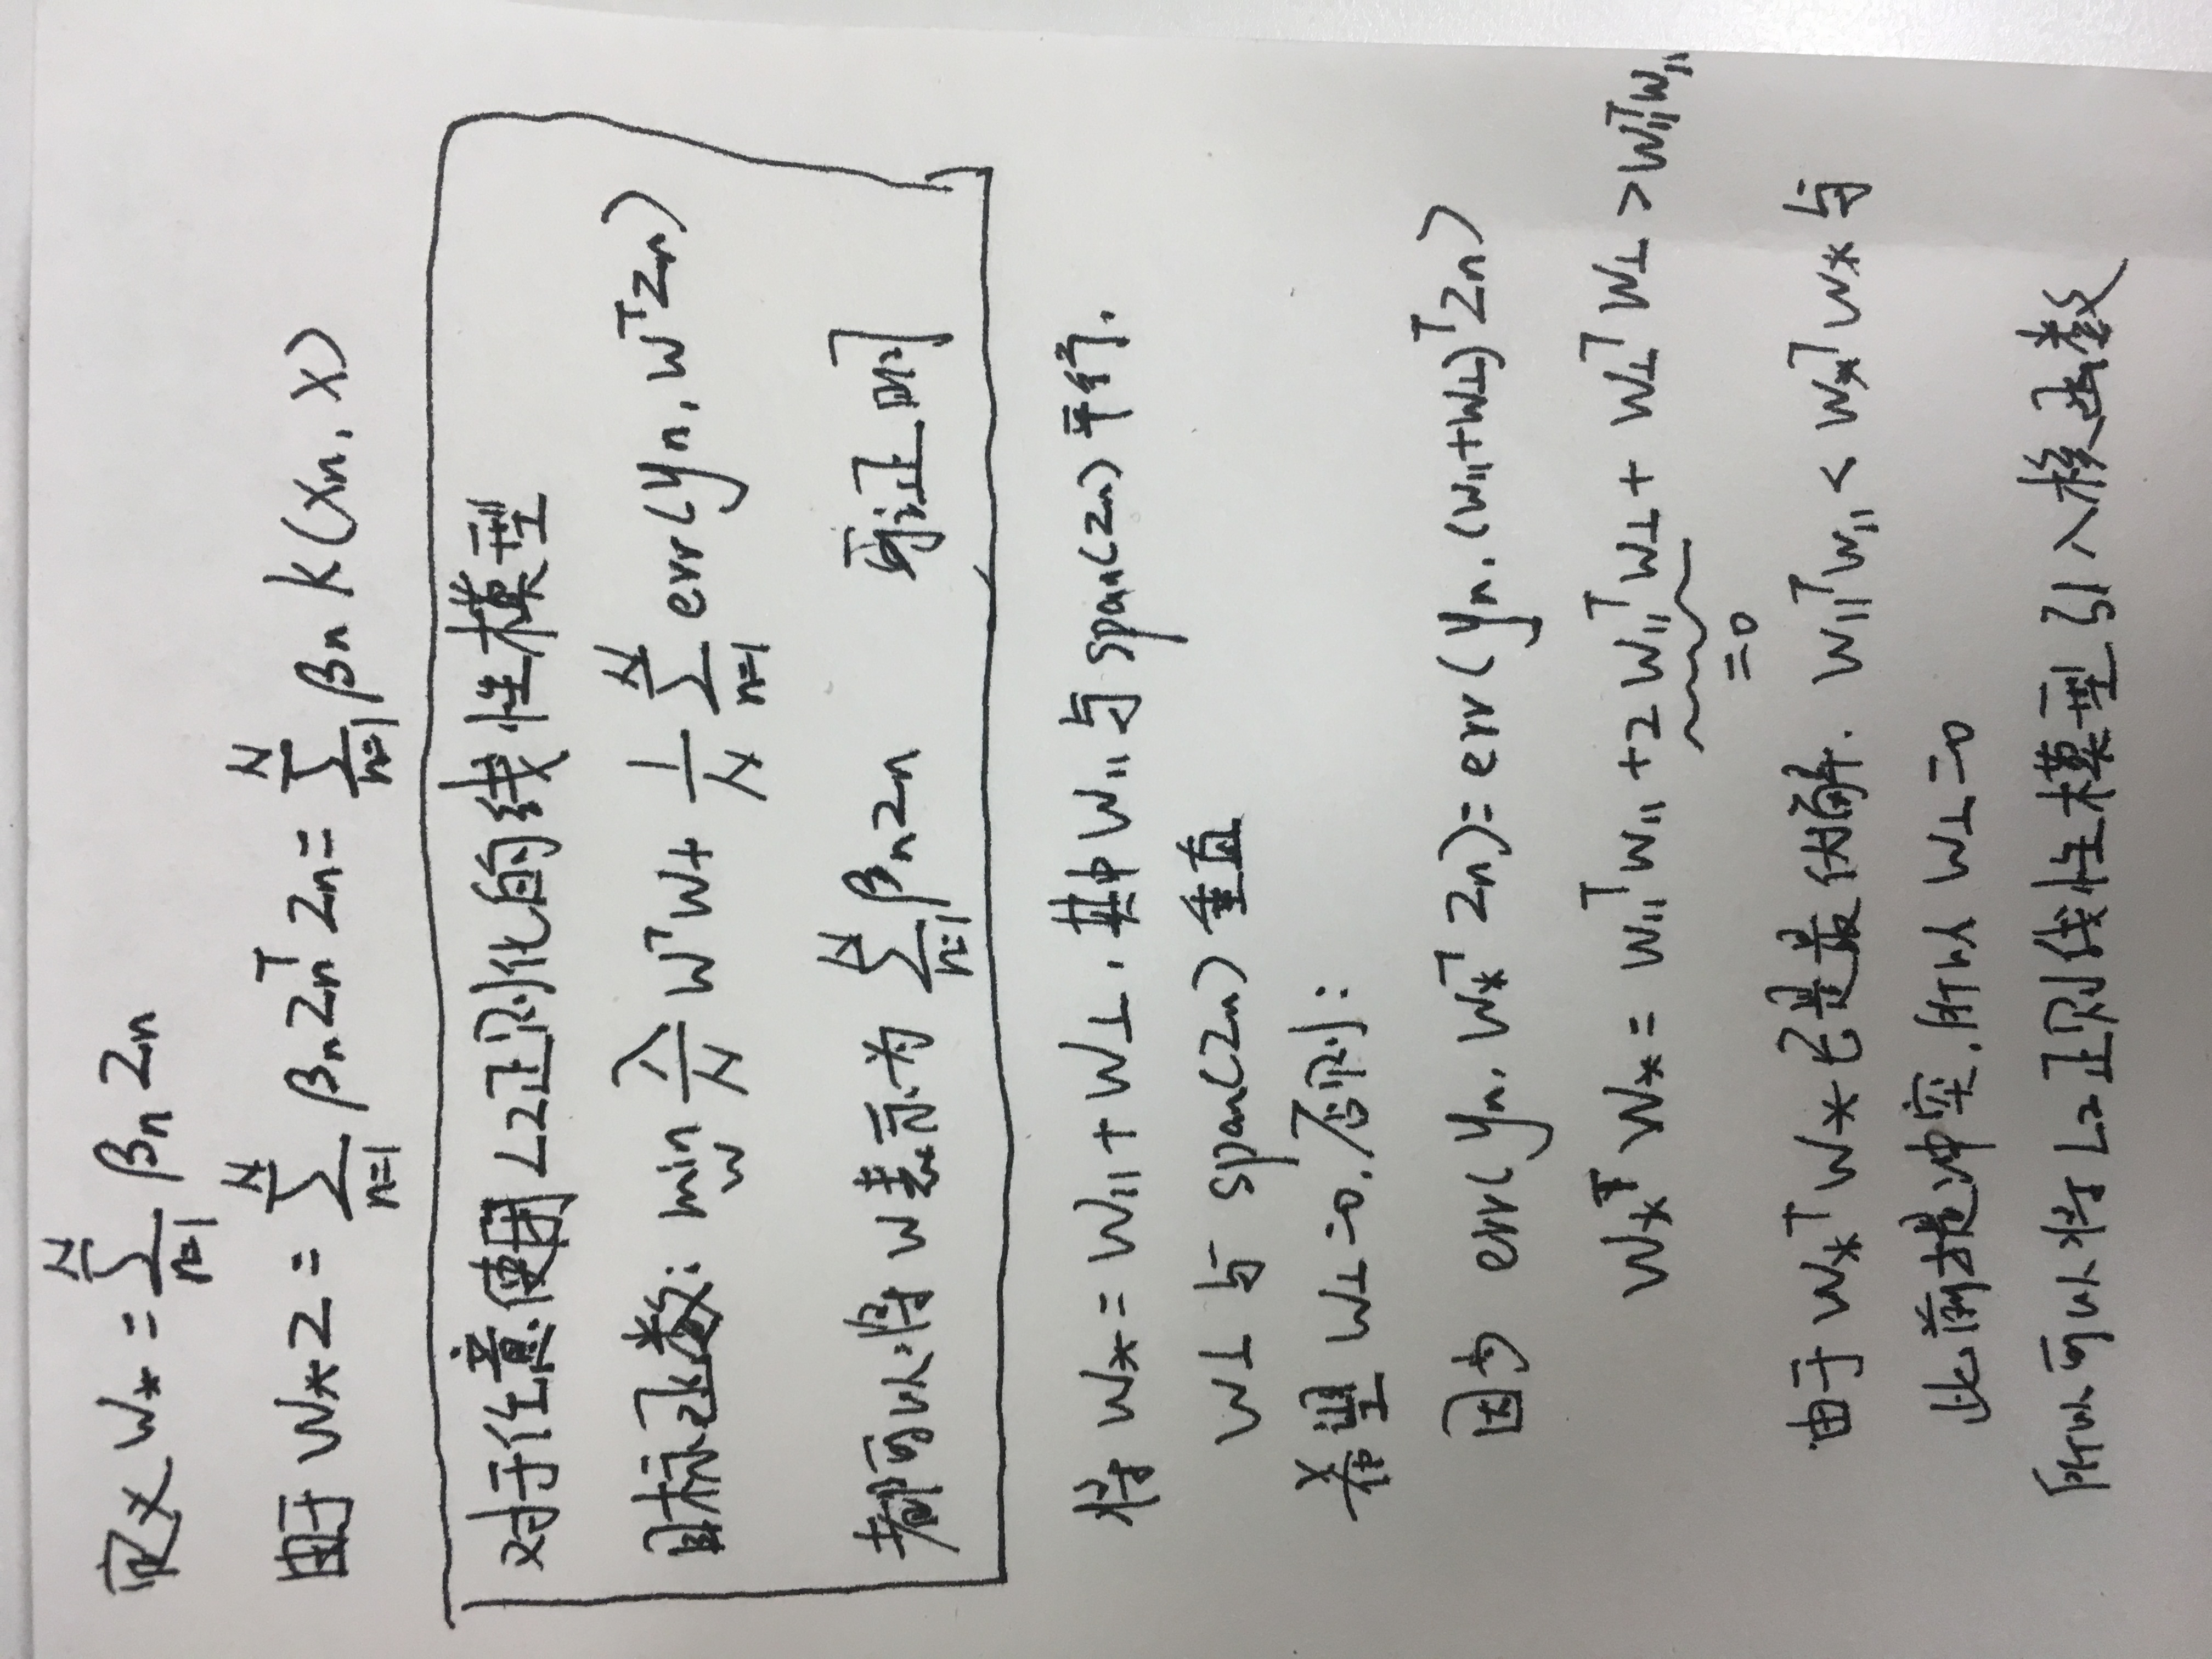 定义 W* = ∑_{n=1}^{N} βn Zn
由于 W* Z = ∑_{n=1}^{N} βn Zn^T Zn = ∑_{n=1}^{N} βn K(Xn, X)
对于任意使用L2正则化的线性模型
目标函数: min_W λ/N W^T W + 1/N ∑_{n=1}^{N} err(yn, W^T Zn)
都可以将 W 表示为 ∑_{n=1}^{N} βn Zn 可证明
将 W* = W∥ + W⊥, 其中 W∥ 与 span(Zn) 平行.
W⊥ 与 span(Zn) 垂直
希望 W⊥ = 0, 否则:
因为 err(yn, W*^T Zn) = err(yn, (W∥+W⊥)^T Zn)
W*^T W* = W∥^T W∥ + 2 W∥^T W⊥ + W⊥^T W⊥ > W∥^T W∥
= 0
由于 W*^T W* 已是最优解. W∥^T W∥ < W*^T W* 与
此前提冲突, 所以 W⊥ = 0
所以可以将 L2 正则线性模型引入核函数